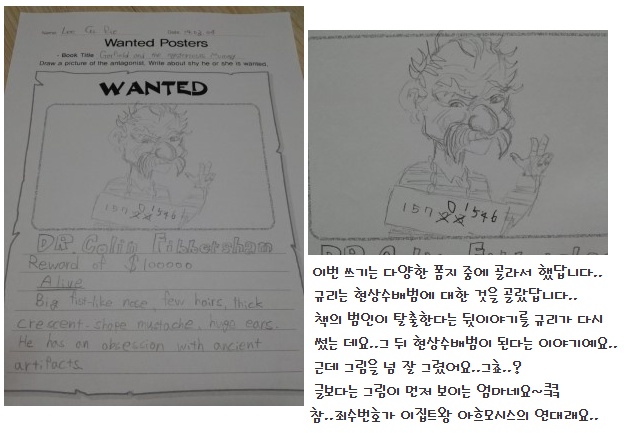 Name Lee Gu Ree Date
Wanted Posters
- Book Title Garfield and the mysterious Mummy
Draw a picture of the antagonist. Write about shy he or she is wanted.
WANTED
DR Colin Fibbersham
Reward of $100000
Alive
Big fur-like nose, few hairs, thick
crescent shape mustache, huge ears.
He has an obsession with ancient
artifacts.
이번 쓰기는 다양한 폼지 중에 골라서 했답니다..
규리는 현상수배범에 대한 것을 골랐답니다..
책의 범인이 탈출한다는 뒷이야기를 규리가 다시
썼는 데요..그 뒤 현상수배범이 된다는 이야기예요..
근데 그림을 넘 잘 그렸어요..그쵸..?
글보다는 그림이 먼저 보이는 엄마네요~큭큭
참..죄수번호가 이집트왕 아흐모시스의 연대래요..